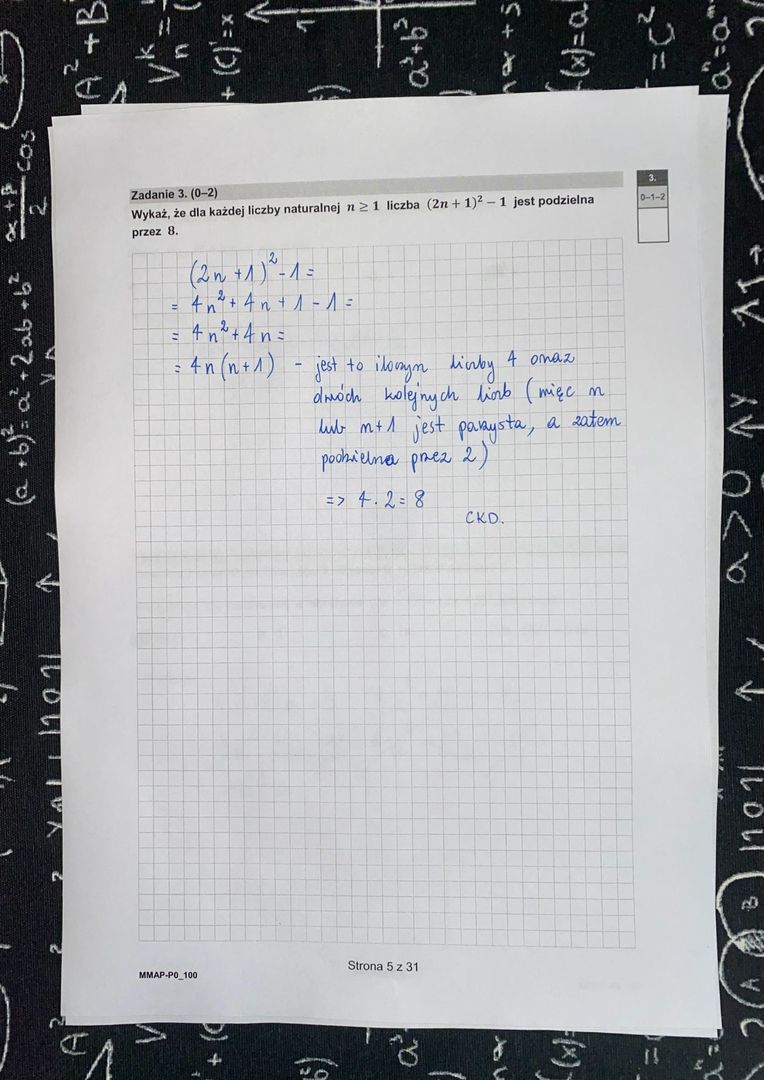 Zadanie 3. (0–2)
Wykaż, że dla każdej liczby naturalnej n ≥ 1 liczba (2n + 1)² − 1 jest podzielna
przez 8.
3.
0–1–2
(2n+1)² - 1 =
= 4n² + 4n + 1 - 1 =
= 4n² + 4n =
= 4n(n+1) - jest to iloczyn liczby 4 oraz
dwóch kolejnych liczb (więc n
lub n+1 jest parzysta, a zatem
podzielna przez 2)
=> 4 · 2 = 8
CKD.
Strona 5 z 31
MMAP-P0_100
(a+b)² = a² + 2ab + b²
cos
2
A² + B
a > 0